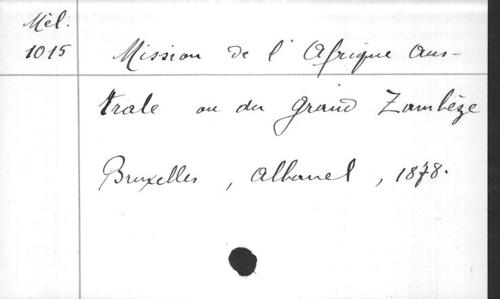 Mél.
1015
Mission de l'Afrique aus-
trale ou du grand Zambèze
Bruxelles, Albanel, 1878.